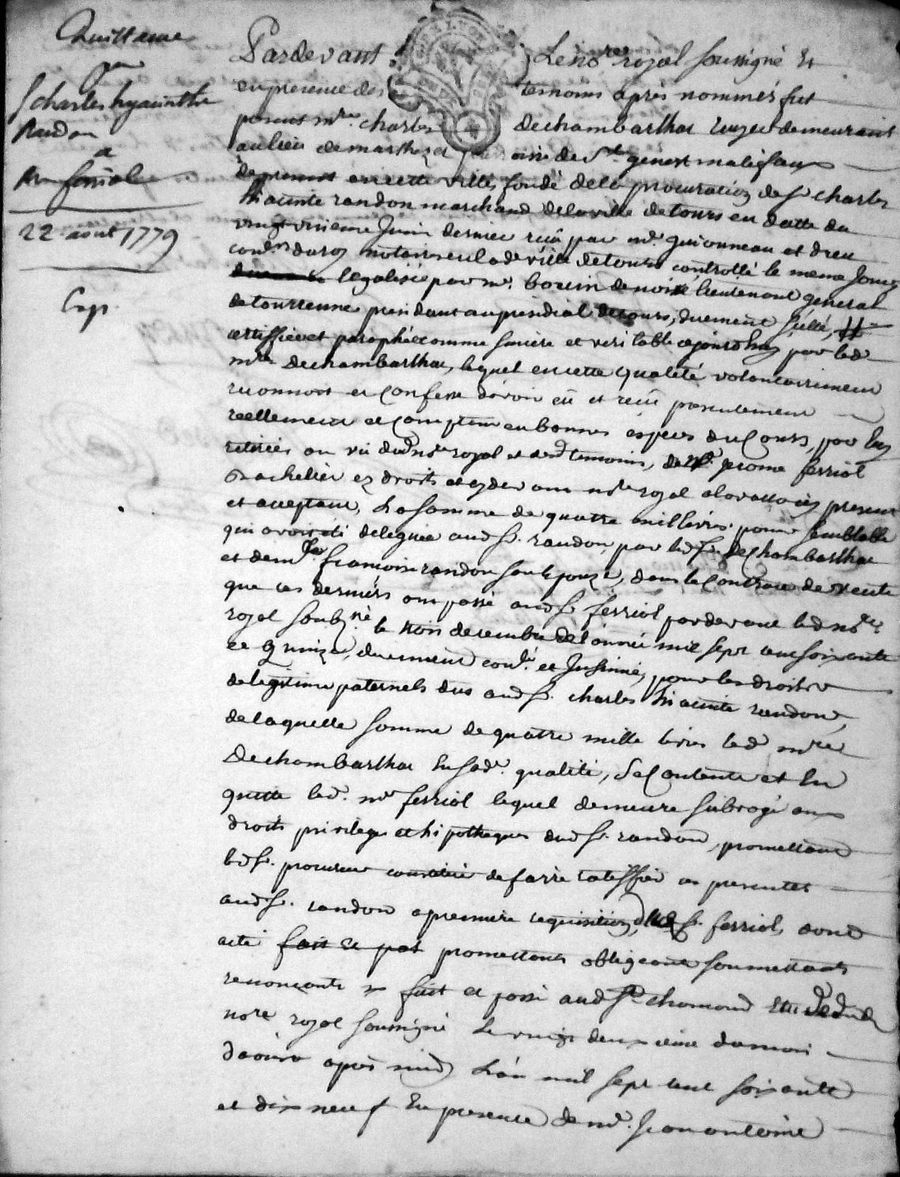 Quittance
par
S charles hyacinthe
Randon
a
Mr ferriol
22 aout 1779
Pardevant Le nore royal soussigné et
en presence des temoins apres nommés fut
present mre charles dechambarthac ruzey demeurant
au lieu de marthezet paroisse de St genest malifaux
de present en cette ville, fondé de la procuration de sr charles
hiacinte randon marchand de la ville de tours en datte du
vingt unieme Juin dernier reçu par me guionneau et
cons. du roy notaires en lad. ville de tours controllé le meme Jour
legalisée par mr lieutenant general
de tourrenne president au presidial de tours, duement sçellé,
certiffiée et paraphée comme sincere et veritable cejourdhuy par led.
mre dechambarthac, lequel en cette qualité volontairement
reconnoit et confesse davoir eu et reçu presentement
reellement et comptant en bonnes especes du Cours, par luy
retirées au vu dud. nore royal et desd. temoins, de me jerome ferriol
Bachelier ez droits et cydevant nore royal present
et acceptant, La somme de quatre mil livres pour semblable
qui avoit été deleguée aud. sr. randon, par led. sr. dechambarthac
et demlle francoise randon son epouze, dans le Contrat de vente
que ces derniers ont passé aud. sr. ferriol pardevant led. nore
royal soubzné le trois decembre de l'année mil sept cent soixante
et quinze, duement conlé. et Insinué, pour les droits
de legitime paternels dus aud. sr. charles hiacinte randon,
de laquelle somme de quatre mille livres led. mre
Dechambarthac En sad. qualité, se Contente et En
quitte led. mr ferriol lequel demeure subrogé aux
droits privileges et hipotheques dud. sr. randon, promettant
led. sr. procureur de faire ratiffier ces presentes
aud. sr. randon a premiere requisition dud. sr. ferriol, dont
acte fait et pat promettants obligeants soumettants
renonçants fait et passé aud. St chamond Etude du
nore royal soussigné Le vingt deuxieme du mois
daoust apres midy L'an mil sept cent soixante
et dix neuf En presence de mr. jean antoine